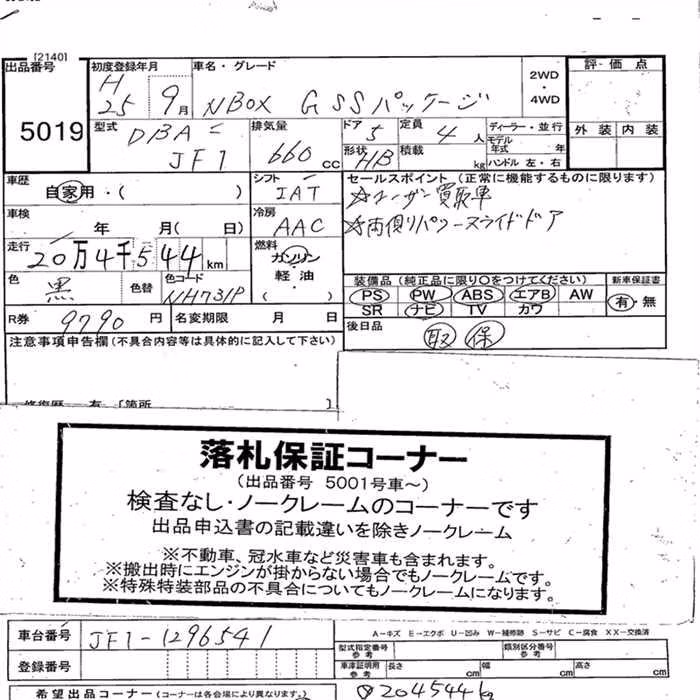 [2140]
出品番号
5019
初度登録年月
H
25 9月
車名・グレード
NBOX G SSパッケージ
2WD
・
4WD
評・価 点
外 装 内 装
型式
DBA-
JF1
排気量
660cc
ドア 5
形状 HB
定員 4人
積載 kg
ディーラー・並行
モデル
年式 年
ハンドル 左・右
車歴
自家用・( )
シフト
IAT
セールスポイント (正常に機能するものに限ります)
☆ユーザー買取車
☆両側パワースライドドア
車検
年 月( 日)
冷房
AAC
走行
20万4千544km
燃料
ガソリン
軽・油
( )
色
黒
色替
色コード
NH731P
装備品 (純正品に限り○をつけてください)
PS PW ABS エアB AW
SR ナビ TV カワ
新車保証書
有・無
R券
9790円
名変期限 月 日
後日品
取 保
注意事項申告欄 (不具合内容等は具体的に記入して下さい)
修復歴 有 [箇所 ]
落札保証コーナー
(出品番号 5001号車〜)
検査なし・ノークレームのコーナーです
出品申込書の記載違いを除きノークレーム
※不動車、冠水車など災害車も含まれます。
※搬出時にエンジンが掛からない場合でもノークレームです。
※特殊特装部品の不具合についてもノークレームになります。
車台番号
JF1-1296541
A-キズ E-エクボ U-凹み W-補修跡 S-サビ C-腐食 XX-交換済
型式指定番号
参考
類別区分番号
参考
登録番号
車庫証明用
参考
長さ cm 幅 cm 高さ cm
希望出品コーナー (コーナーは各会場により異なります。)
204544k